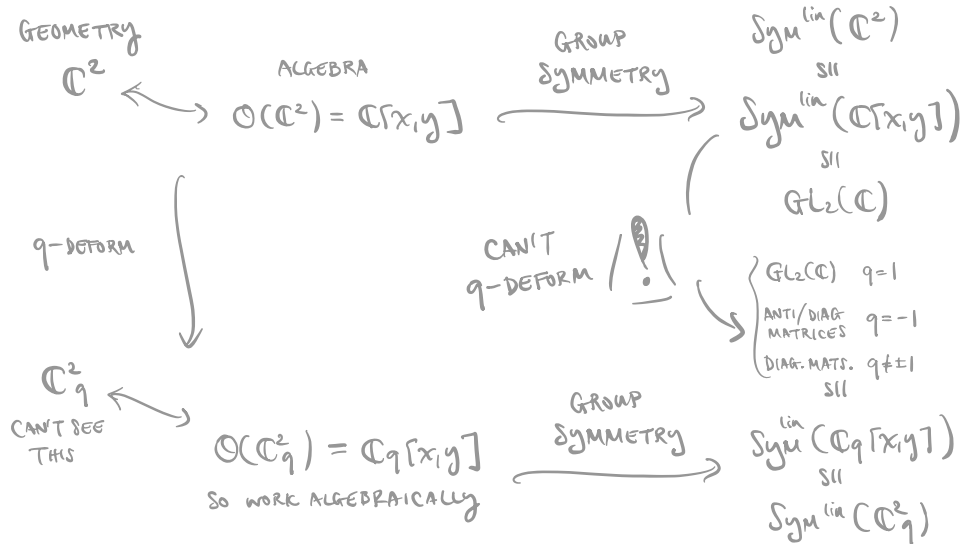 GEOMETRY
ℂ²
ALGEBRA
O(ℂ²) = ℂ[x,y]
GROUP
SYMMETRY
Sym^lin(ℂ²)
≅
Sym^lin(ℂ[x,y])
≅
GL₂(ℂ)
q-DEFORM
CAN'T
q-DEFORM
!
GL₂(ℂ) q=1
ANTI/DIAG MATRICES q=-1
DIAG. MATS. q≠±1
≅
ℂ²_q
CAN'T SEE
THIS
O(ℂ²_q) = ℂ_q[x,y]
SO WORK ALGEBRAICALLY
GROUP
SYMMETRY
Sym^lin(ℂ_q[x,y])
≅
Sym^lin(ℂ²_q)